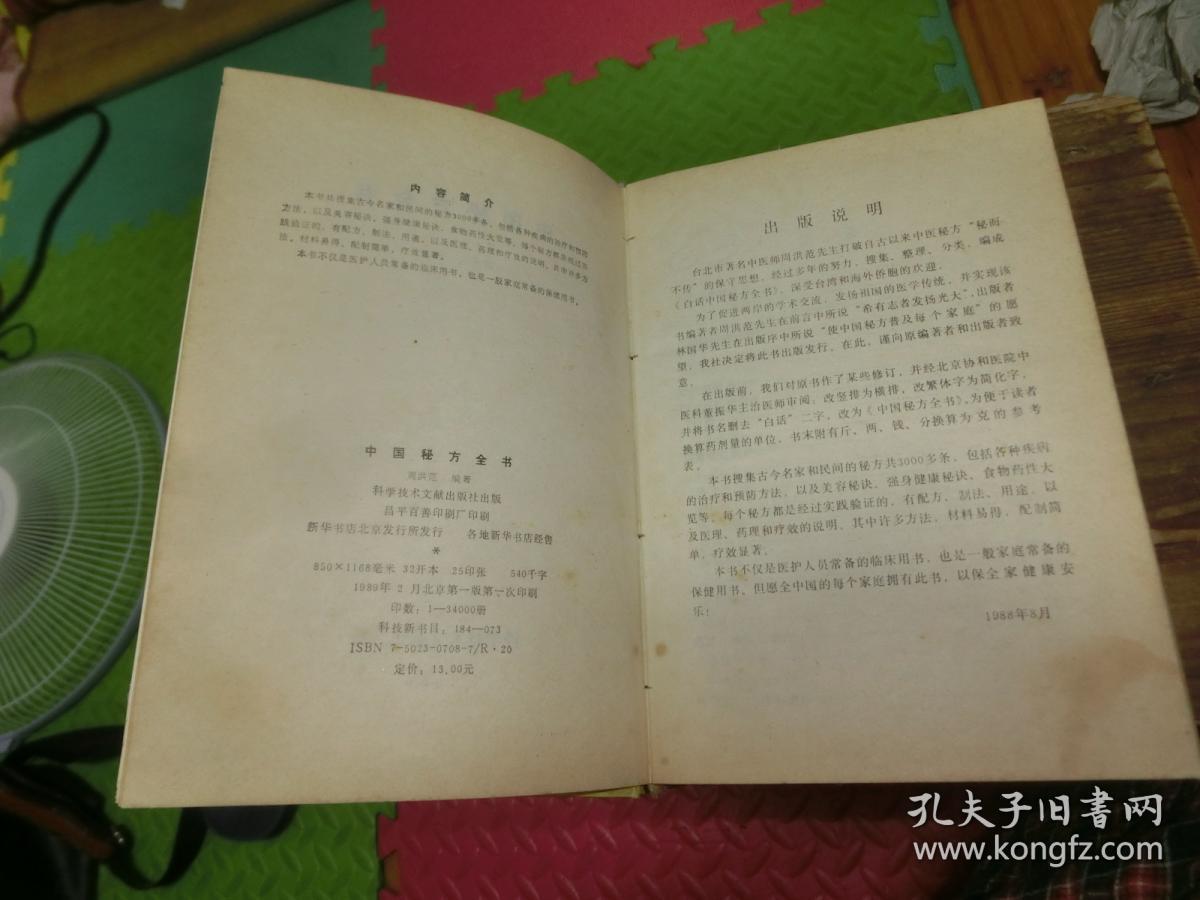 内容简介
本书共搜集古今名家和民间的秘方3000多条，包括各种疾病的治疗和预防
方法，以及美容秘诀、强身健康秘诀、食物药性大览等。每个秘方都是经过实
践验证的，有配方、制法、用途，以及医理、药理和疗效的说明，其中许多方
法，材料易得，配制简单，疗效显著。
本书不仅是医护人员常备的临床用书，也是一般家庭常备的保健用书。
中国秘方全书
周洪范 编著
科学技术文献出版社出版
昌平百善印刷厂印刷
新华书店北京发行所发行 各地新华书店经售
*
850×1168毫米 32开本 25印张 540千字
1989年2月北京第一版第一次印刷
印数：1—34000册
科技新书目：184—073
ISBN 7-5023-0708-7/R·20
定价：13.00元
出版说明
台北市著名中医师周洪范先生打破自古以来中医秘方“秘而
不传”的保守思想，经过多年的努力，搜集、整理、分类，编成
《白话中国秘方全书》，深受台湾和海外侨胞的欢迎。
为了促进两岸的学术交流，发扬祖国的医学传统，并实现该
书编著者周洪范先生在前言中所说“希有志者发扬光大”，出版者
林国华先生在出版序中所说“使中国秘方普及每个家庭”的愿
望，我社决定将此书出版发行。在此，谨向原编著者和出版者致
意。
在出版前，我们对原书作了某些修订，并经北京协和医院中
医科董振华主治医师审阅；改竖排为横排，改繁体字为简化字，
并将书名删去“白话”二字，改为《中国秘方全书》。为便于读者
换算药剂量的单位，书末附有斤、两、钱、分换算为克的参考
表。
本书搜集古今名家和民间的秘方共3000多条，包括各种疾病
的治疗和预防方法，以及美容秘诀、强身健康秘诀、食物药性大
览等。每个秘方都是经过实践验证的，有配方、制法、用途，以
及医理、药理和疗效的说明，其中许多方法，材料易得，配制简
单，疗效显著。
本书不仅是医护人员常备的临床用书，也是一般家庭常备的
保健用书。但愿全中国的每个家庭拥有此书，以保全家健康安
乐！
1988年8月
孔夫子旧书网
www.kongfz.com